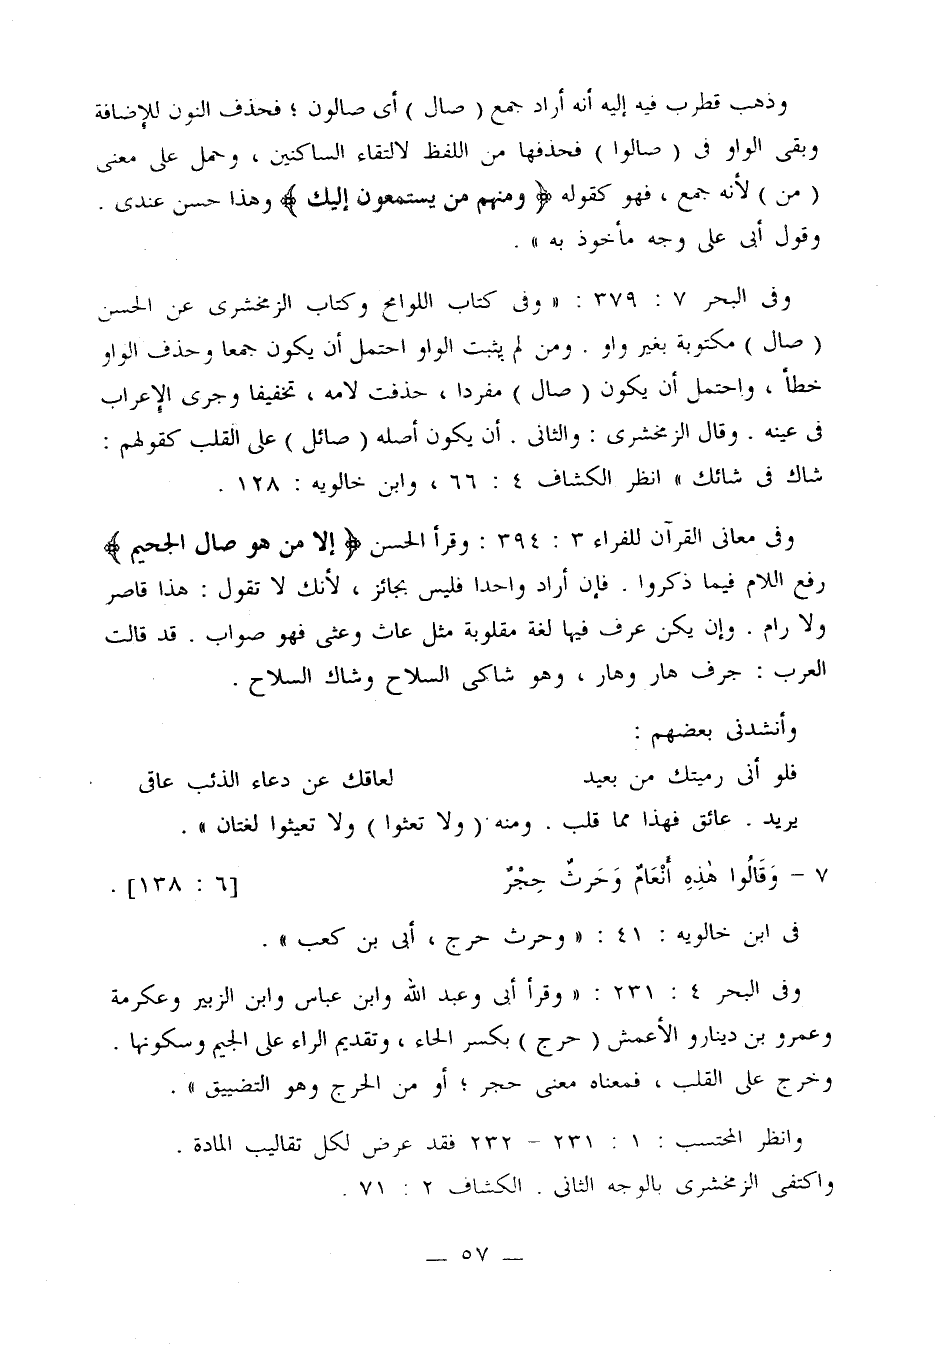 وذهب قطرب فيه إليه أنه أراد جمع ( صال ) أى صالون ؛ فحذف النون للإضافة
وبقى الواو فى ( صالوا ) فحذفها من اللفظ لالتقاء الساكنين ، وحمل على معنى
( من ) لأنه جمع ، فهو كقوله ﴿ ومنهم من يستمعون إليك ﴾ وهذا حسن عندى .
وقول أبى على وجه مأخوذ به » .
وفى البحر ٧ : ٣٧٩ : « وفى كتاب اللوامح وكتاب الزمخشرى عن الحسن
( صال ) مكتوبة بغير واو . ومن لم يثبت الواو احتمل أن يكون جمعا وحذف الواو
خطأ ، واحتمل أن يكون ( صال ) مفردا ، حذفت لامه ، تخفيفا وجرى الإعراب
فى عينه . وقال الزمخشرى : والثانى . أن يكون أصله ( صائل ) على القلب كقولهم :
شاك فى شائك » انظر الكشاف ٤ : ٦٦ ، وابن خالويه : ١٢٨ .
وفى معانى القرآن للفراء ٣ : ٣٩٤ : وقرأ الحسن ﴿ إلا من هو صال الجحيم ﴾
رفع اللام فيما ذكروا . فإن أراد واحدا فليس بجائز ، لأنك لا تقول : هذا قاصر
ولا رام . وإن يكن عرف فيها لغة مقلوبة مثل عاث وعثى فهو صواب . قد قالت
العرب : جرف هار وهار ، وهو شاكى السلاح وشاك السلاح .
وأنشدنى بعضهم :
فلو أنى رميتك من بعيد لعاقك عن دعاء الذئب عاقى
يريد . عائق فهذا مما قلب . ومنه ( ولا تعثوا ) ولا تعيثوا لغتان » .
٧ – وَقَالُوا هٰذِهِ أَنْعَامٌ وَحَرثٌ حِجْرٌ [٦ : ١٣٨] .
فى ابن خالويه : ٤١ : « وحرث حرج ، أبى بن كعب » .
وفى البحر ٤ : ٢٣١ : « وقرأ أبى وعبد الله وابن عباس وابن الزبير وعكرمة
وعمرو بن دينارو الأعمش ( حرج ) بكسر الحاء ، وتقديم الراء على الجيم وسكونها .
وخرج على القلب ، فمعناه معنى حجر ؛ أو من الحرج وهو التضييق » .
وانظر المحتسب : ١ : ٢٣١ – ٢٣٢ فقد عرض لكل تقاليب المادة .
واكتفى الزمخشرى بالوجه الثانى . الكشاف ٢ : ٧١ .
— ٥٧ —